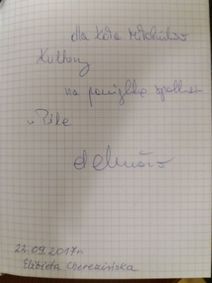 dla Koła Miłośników
Kultury
na pamiątkę spotkania
w Pile
22.09.2017r.
Elżbieta Cherezińska